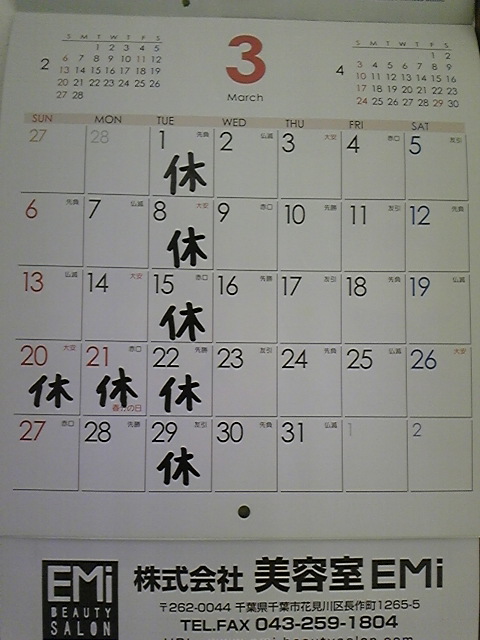 S M T W T F S
1 2 3 4 5
2 6 7 8 9 10 11 12
13 14 15 16 17 18 19
20 21 22 23 24 25 26
27 28
3
March
S M T W T F S
1 2
4 3 4 5 6 7 8 9
10 11 12 13 14 15 16
17 18 19 20 21 22 23
24 25 26 27 28 29 30
SUN MON TUE WED THU FRI SAT
27 28 1 先負 2 仏滅 3 大安 4 赤口 5 友引
休
6 先負 7 仏滅 8 大安 9 赤口 10 先勝 11 友引 12 先負
休
13 仏滅 14 大安 15 赤口 16 先勝 17 友引 18 先負 19 仏滅
休
20 大安 21 赤口 22 先勝 23 友引 24 先負 25 仏滅 26 大安
休 休 休
春分の日
27 赤口 28 先勝 29 友引 30 先負 31 仏滅 1 2
休
EMi
BEAUTY
SALON
株式会社 美容室 EMi
〒262-0044 千葉県千葉市花見川区長作町1265-5
TEL.FAX 043-259-1804